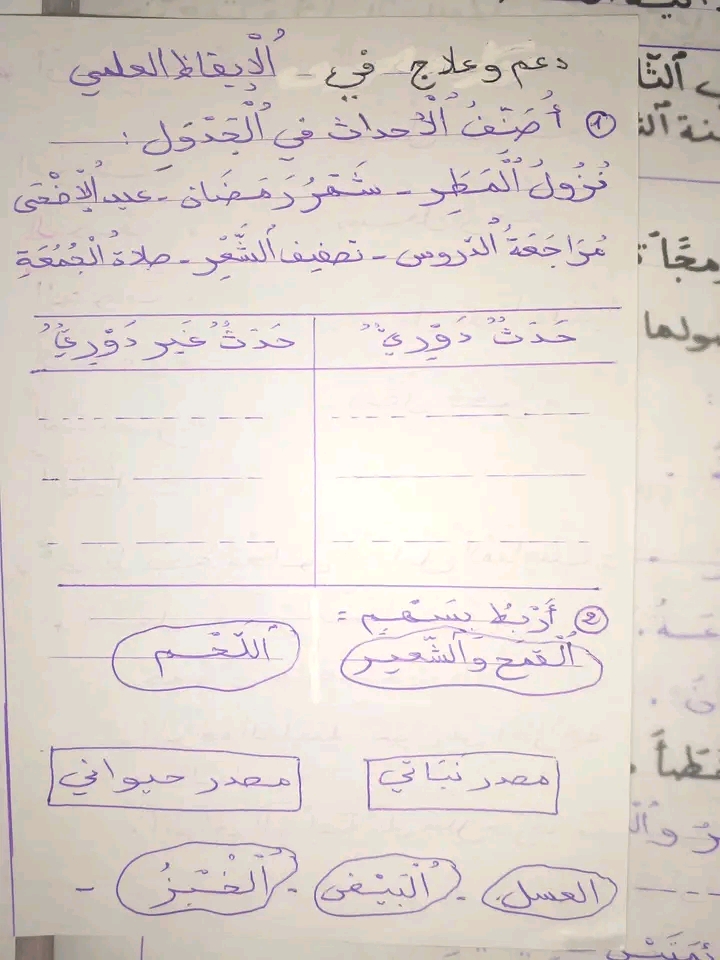 دعم وعلاج في الْإيقاظ العلمي
① أُصَنِّفُ الْأحداث في الْجَدْوَلِ :
نُزُولُ الْمَطَرِ - شَهْرُ رَمَضَان - عيد الْأضْحَى
مُرَاجَعَةُ الدّروس - تصفيف الشَّعْرِ - صلاة الْجُمُعَةِ
حَدَثٌ دَوْرِيٌّ حَدَثٌ غَيْر دَوْرِيٍّ
② أَرْبِطُ بِسَهْمٍ =
الْقمح والشّعير اللّحْم
مصدر نبَاتي مصدر حيواني
العسل - الْبَيْض - الْخُبْزُ -